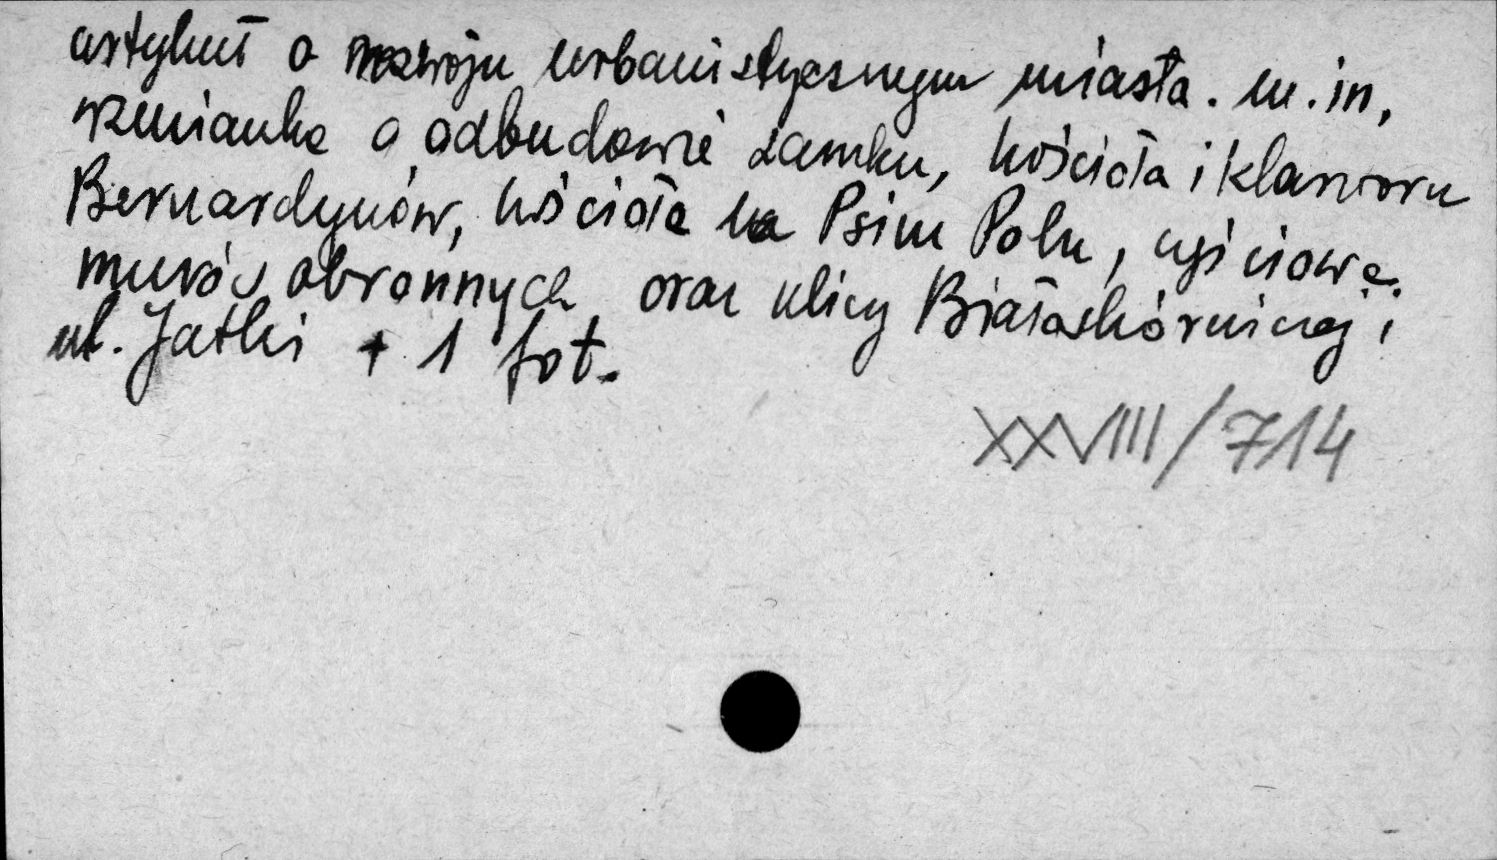 artykuł o rozwoju urbanistycznym miasta. m. in,
wzmianka o odbudowie zamku, kościoła i klasztoru
Bernardynów, kościoła na Psim Polu, częściowa
murów obronnych, oraz ulicy Białoskórniczej i
ul. Jatki + 1 fot.
XXVIII/714